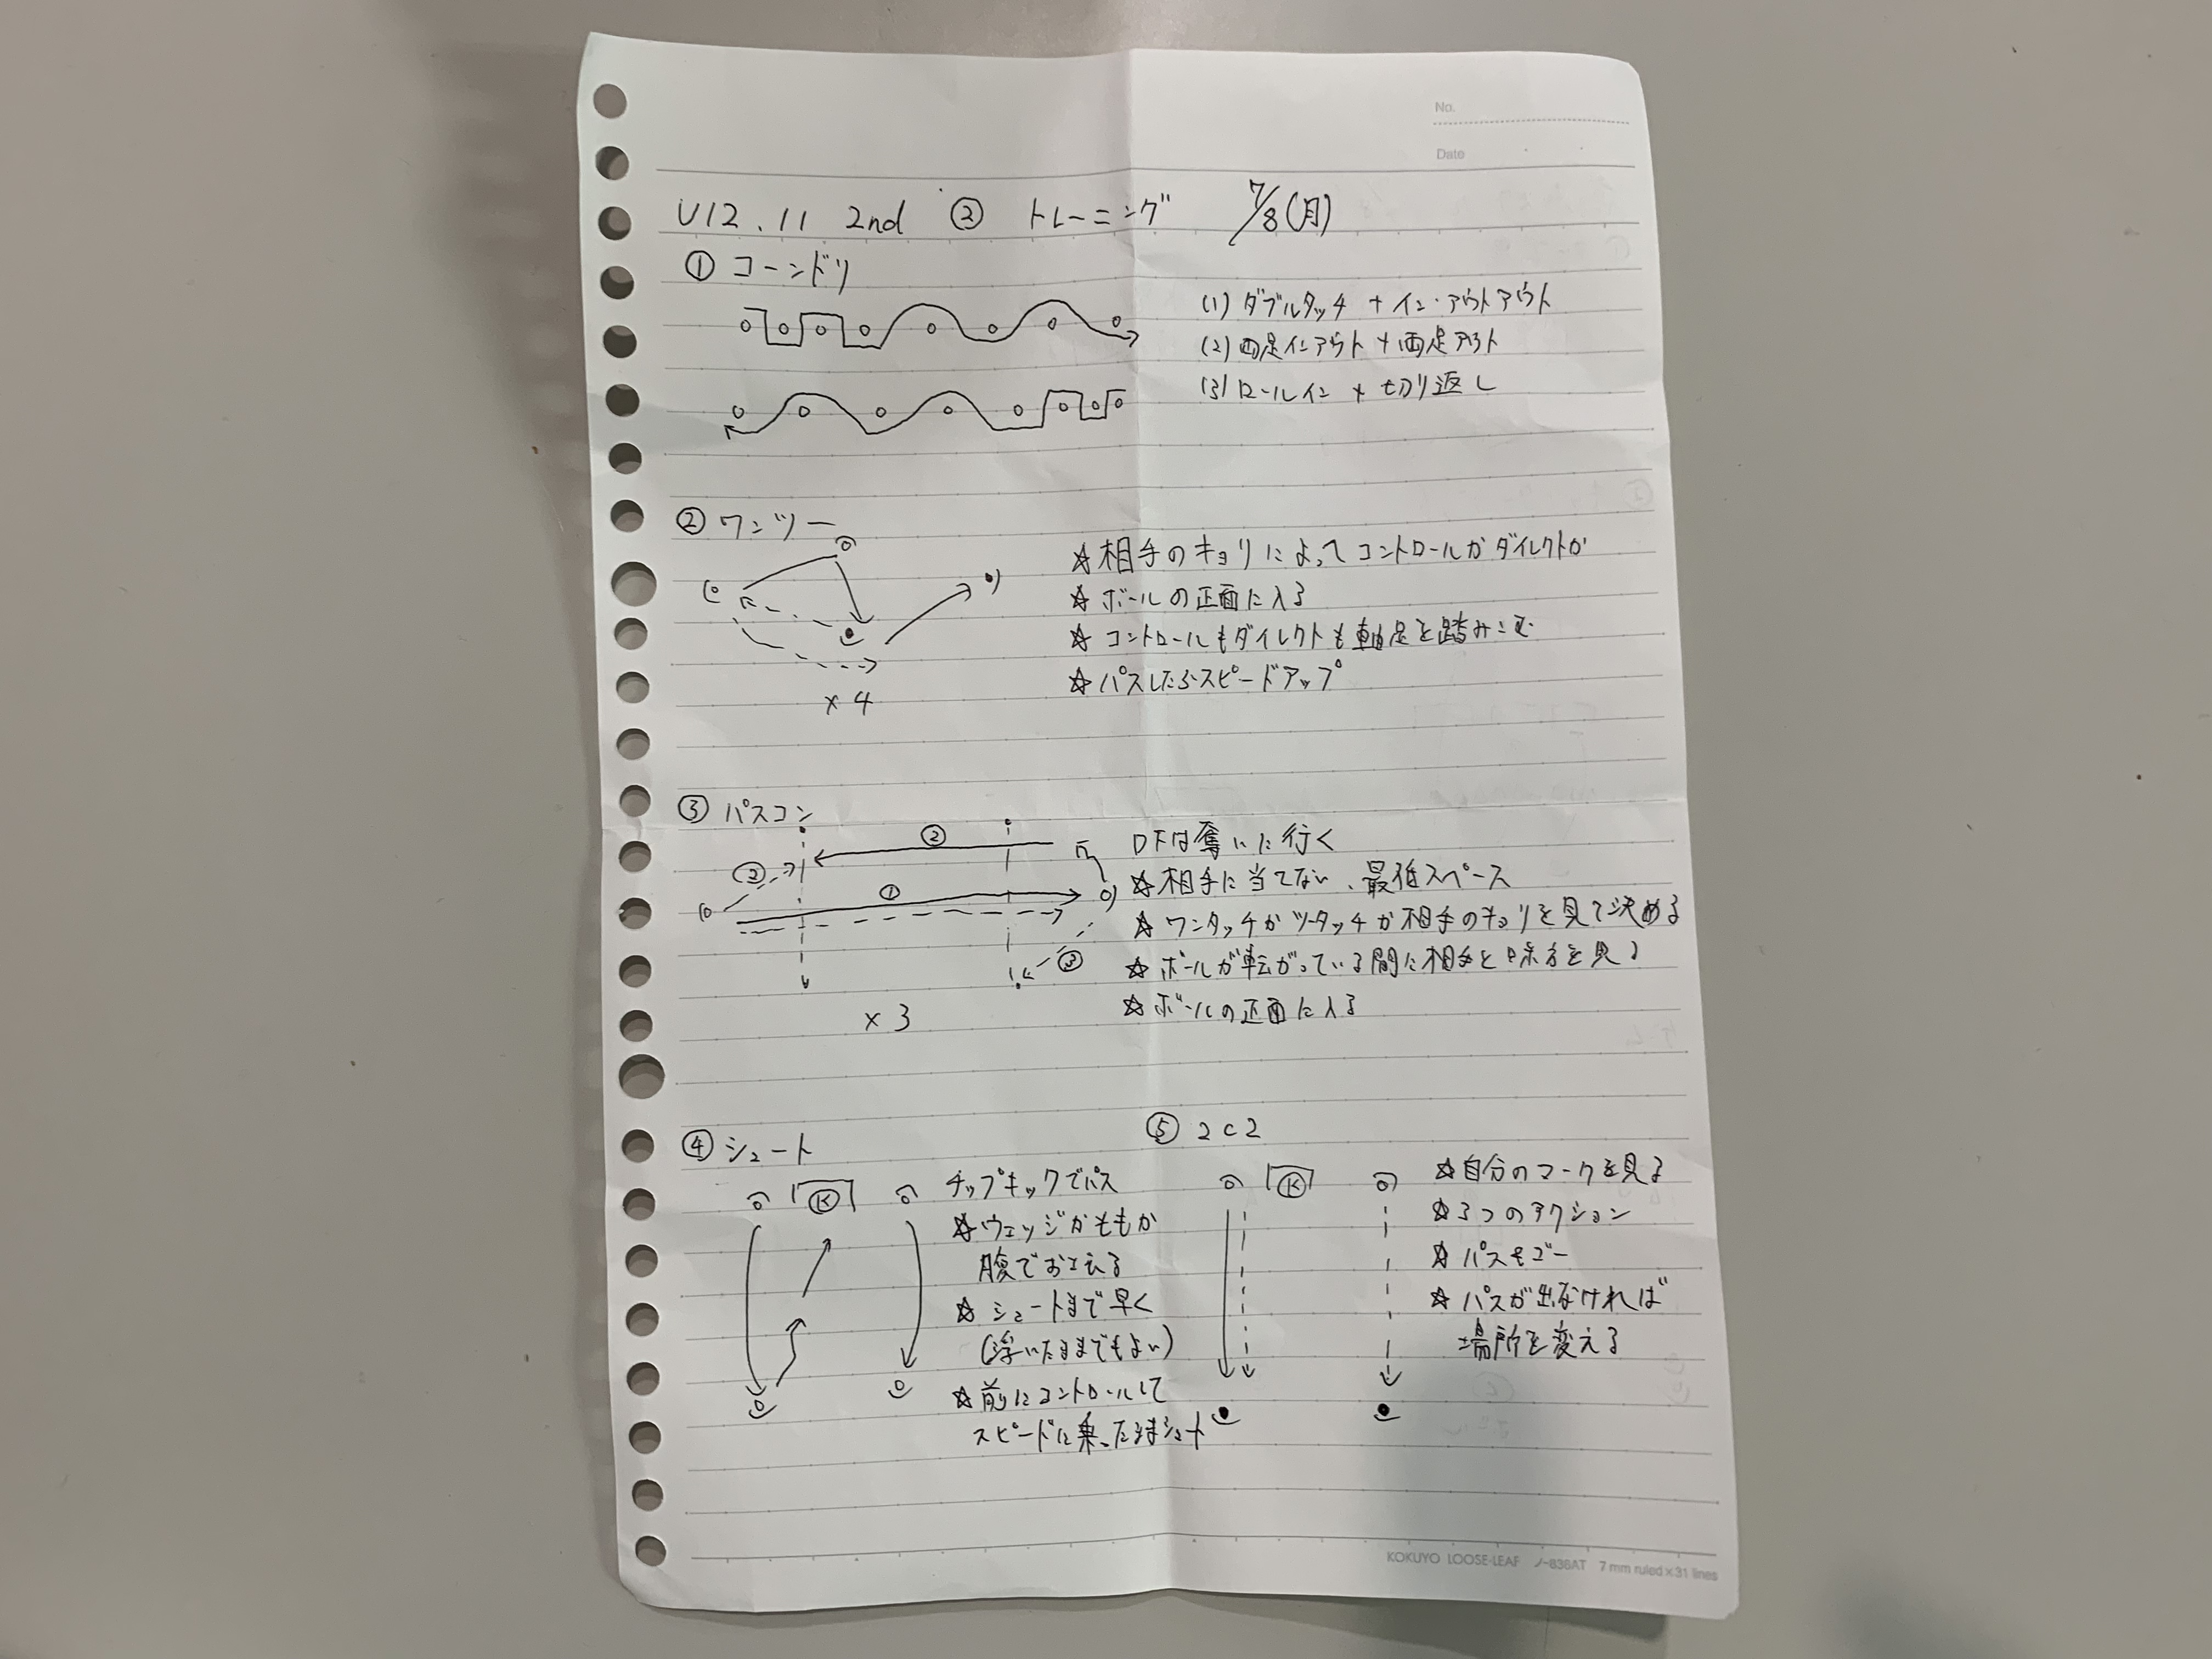 No.
Date
U12.11 2nd ② トレーニング 7/8(月)
① コーンドリ
(1) ダブルタッチ + イン・アウトアウト
(2) 両足インアウト + 両足アウト
(3) ロールイン + 切り返し
② ワンツー
☆相手のキョリによってコントロールかダイレクトか
☆ ボールの正面に入る
☆ コントロールもダイレクトも軸足を踏みこむ
☆パスしたらスピードアップ
× 4
③ パスコン
② ① ③
DFは奪いに行く
☆相手に当てない、最低スペース
☆ ワンタッチかツータッチか相手のキョリを見て決める
☆ ボールが転がっている間に相手と味方を見る
☆ ボールの正面に入る
③
× 3
④ シュート
K
チップキックでパス
☆ウェッジかももか
腹でおさえる
☆ シュートまで早く
(浮いたままでもよい)
☆ 前にコントロールして
スピードに乗ったままシュート
⑤ 2c2
K
☆自分のマークを見る
☆3つのアクション
☆ パス&ゴー
☆ パスが出なければ
場所を変える
KOKUYO LOOSE-LEAF ノ-836AT 7 mm ruled×31 lines